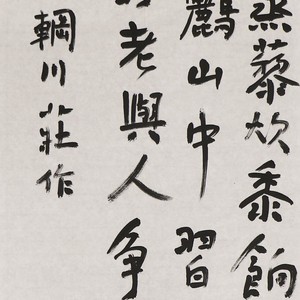 藜炊黍餉
鸝山中習
老與人争
輞川莊作